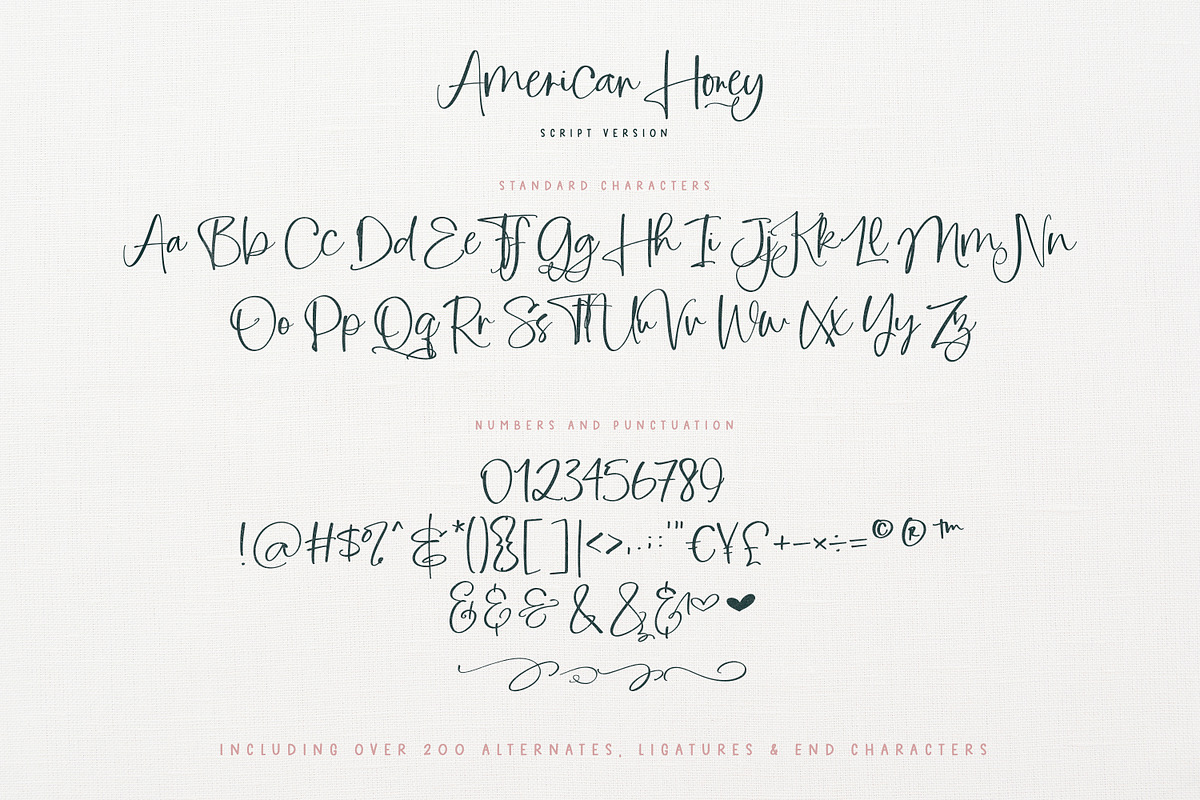 American Honey
SCRIPT VERSION
STANDARD CHARACTERS
Aa Bb Cc Dd Ee Ff Gg Hh Ii Jj Kk Ll Mm Nn
Oo Pp Qq Rr Ss Tt Uu Vv Ww Xx Yy Zz
NUMBERS AND PUNCTUATION
0123456789
!@#$%^&*(){}[]|<>,.;:'"€¥£+-×÷=©®™
&&&&&&♡♥
INCLUDING OVER 200 ALTERNATES, LIGATURES & END CHARACTERS